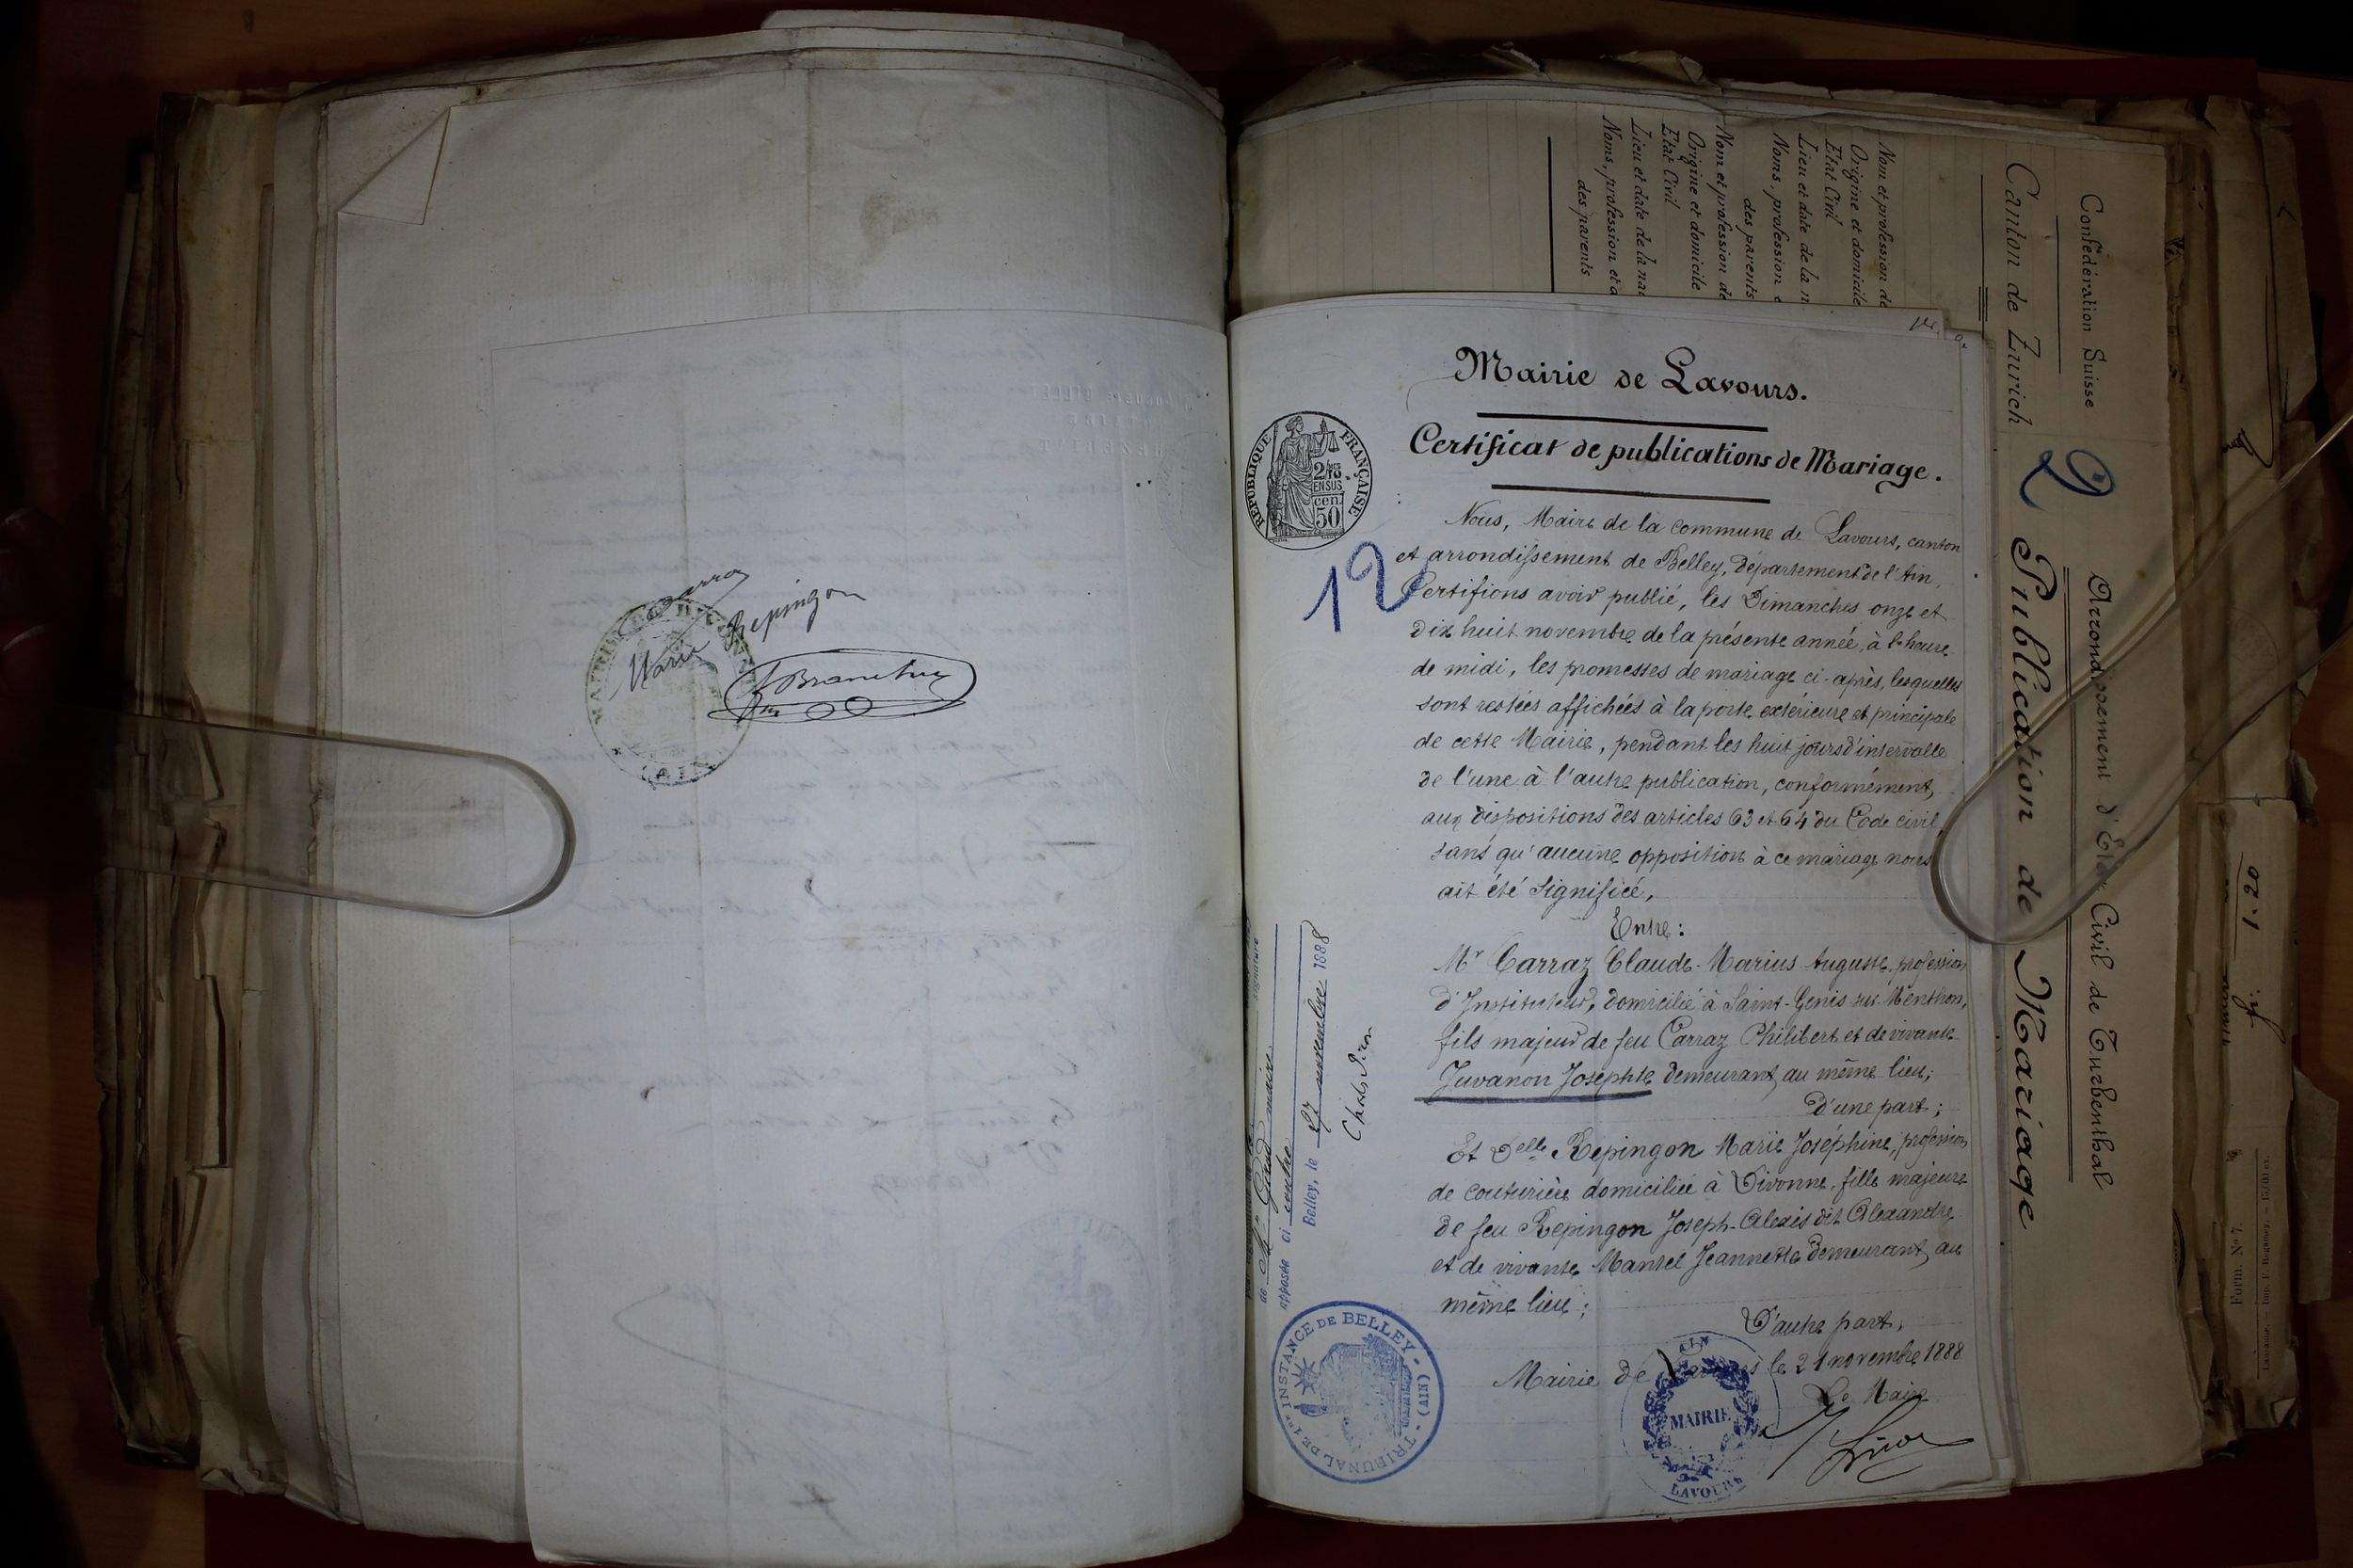 Carraz
Marie Repingon
MAIRIE
(AIN)
Mairie de Lavours.
Certificat de publications de Mariage.
REPUBLIQUE FRANÇAISE
2/10es
EN SUS
cen
50
12
Nous, Maire de la commune de Lavours, canton
et arrondissement de Belley, Département de l'Ain,
Certifions avoir publié, les Dimanches onze et
dix huit novembre de la présente année, à l'heure
de midi, les promesses de mariage ci-après, lesquelles
sont restées affichées à la porte extérieure et principale
de cette Mairie, pendant les huit jours d'intervalle
de l'une à l'autre publication, conformément
aux dispositions des articles 63 et 64 du Code civil,
sans qu'aucune opposition à ce mariage nous
ait été signifiée,
Entre:
Mr Carraz Claude-Marius Auguste, profession
d'Instituteur, domicilié à Saint-Genis sur Menthon,
fils majeur de feu Carraz Philibert et de vivante
Juvanon Josephte demeurant au même lieu;
D'une part;
Et Delle Repingon Marie Joséphine, profession
de couturière domiciliée à Divonne, fille majeure
de feu Repingon Joseph-Alexis dit Alexandre
et de vivante Mantel Jeannette demeurant au
même lieu;
D'autre part.
Mairie de Lavours le 21 novembre 1888
Le Maire
MAIRIE
AIN
LAVOURS
signature
de Mr maire
apposée ci contre
Belley, le 27 novembre 1888
TRIBUNAL DE 1ère INSTANCE DE BELLEY - (AIN)
Confédération Suisse
Canton de Zurich
Arrondissement d'Etat Civil de Turbenthal
2
Publication de Mariage
Nom et profession de
Origine et domicile
Etat Civil
Lieu et date de la n
Noms, profession e
des parents
Nom et profession de
Origine et domicile
Etat Civil
Lieu et date de la nai
Noms, profession et d
des parents
fr. 1.20
Form. No 7.